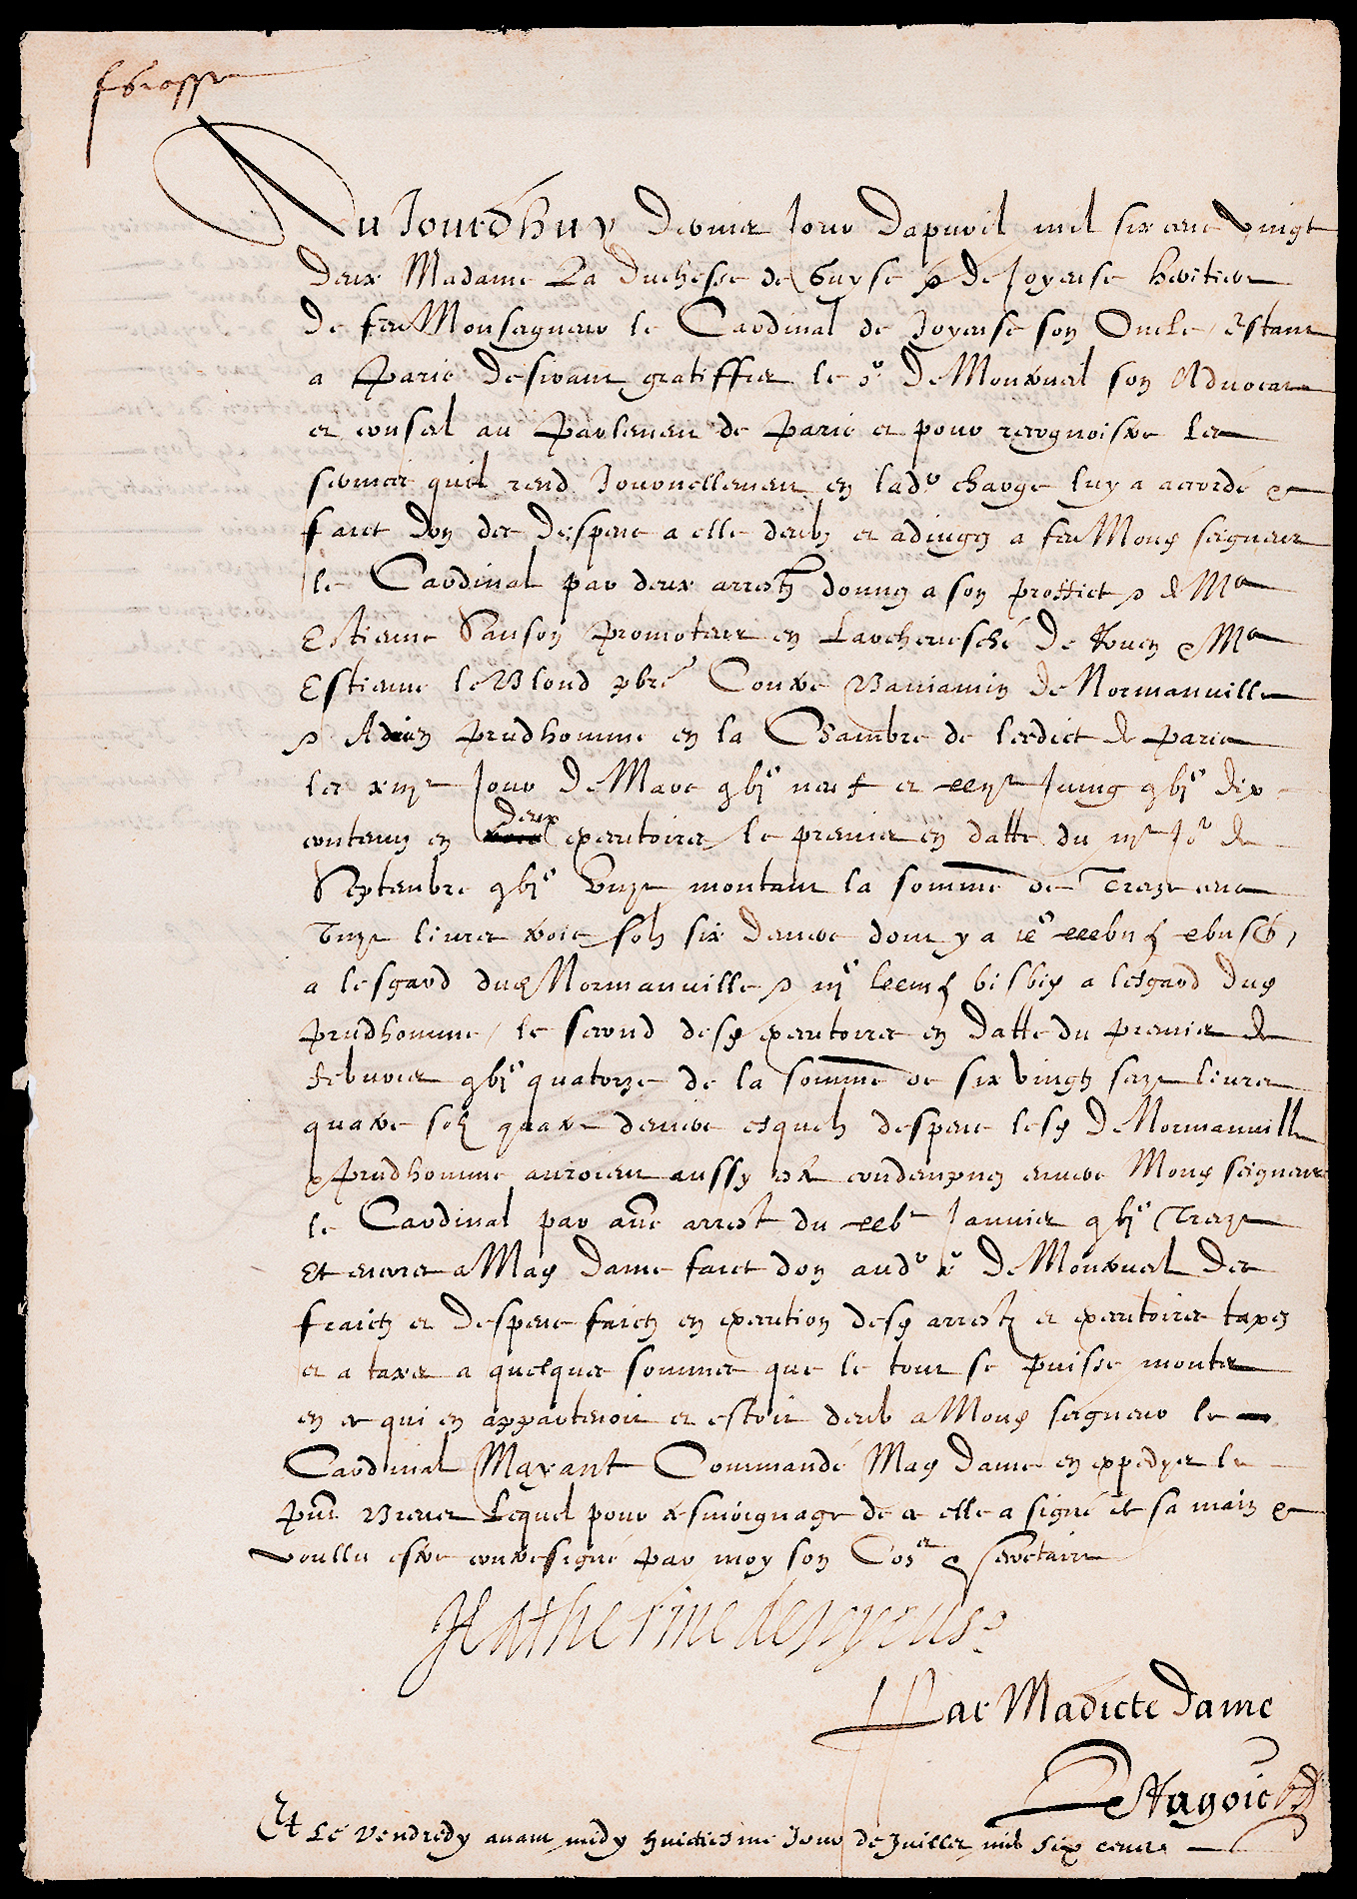 Aujourdhuy dernier Jour dapvril mil six cens vingt
deux Madame La Duchesse de Guyse & de Joyeuse heritiere
de feu Monseigneur le Cardinal de Joyeuse son Oncle, Estant
a Paris desirant gratiffier le sr. De Monstreul son Advocat
et conseil au Parlement de Paris et pour recognoistre les
services quil rend Journellement en ladte charge luy a accordé et
faict don des despens a elle deubz et adjugez a feu Mond seigneur
le Cardinal par deux arrestz donnez a son proffict & de Me
Estienne Sanson Promoteur en Larchevesché de Rouen & Me
Estienne le Blond pbre Contre Baniamin De Normanville
& Adrien Prudhomme en la Chambre de Ledict de Paris
les Jour De Mars neuf et Juing dix
contenuz en deux executoires, le premier en datte du Jor de
Septembre unze montant la somme de Treze cens
unze livres trois solz six deniers dont y a
a lesgard dud Normanville & a lesgard dud
Prudhomme, le second desd executoires en datte du premier de
febvrier quatorze de la somme de six vingtz seze livres
quatre solz quatre deniers esquelz despens lesd De Normanville
& Prudhomme auroient aussy esté condempnez envers Mond seigneur
le Cardinal par autre arrest du Janvier Treze
Et encores a Mad Dame faict don aud sr De Monstreul des
fraictz et despens faictz en execution desd arrestz et executoires taxez
et a taxer a quelques sommes que le tout se puisse monter
en ce qui en appartenoit et estoit deub a Mond seigneur le
Cardinal Mayant Commandé Mad Dame en expedyer le
pnt Brevet Lequel pour tesmoignage de ce elle a signé de sa main et
voullu estre contresigné par moy son Coner & secretaire
Hatherine de Joyeuse
Par Madicte Dame
Et Le Vendredy avant midy huictiesme Jour de Juillet mil six cens